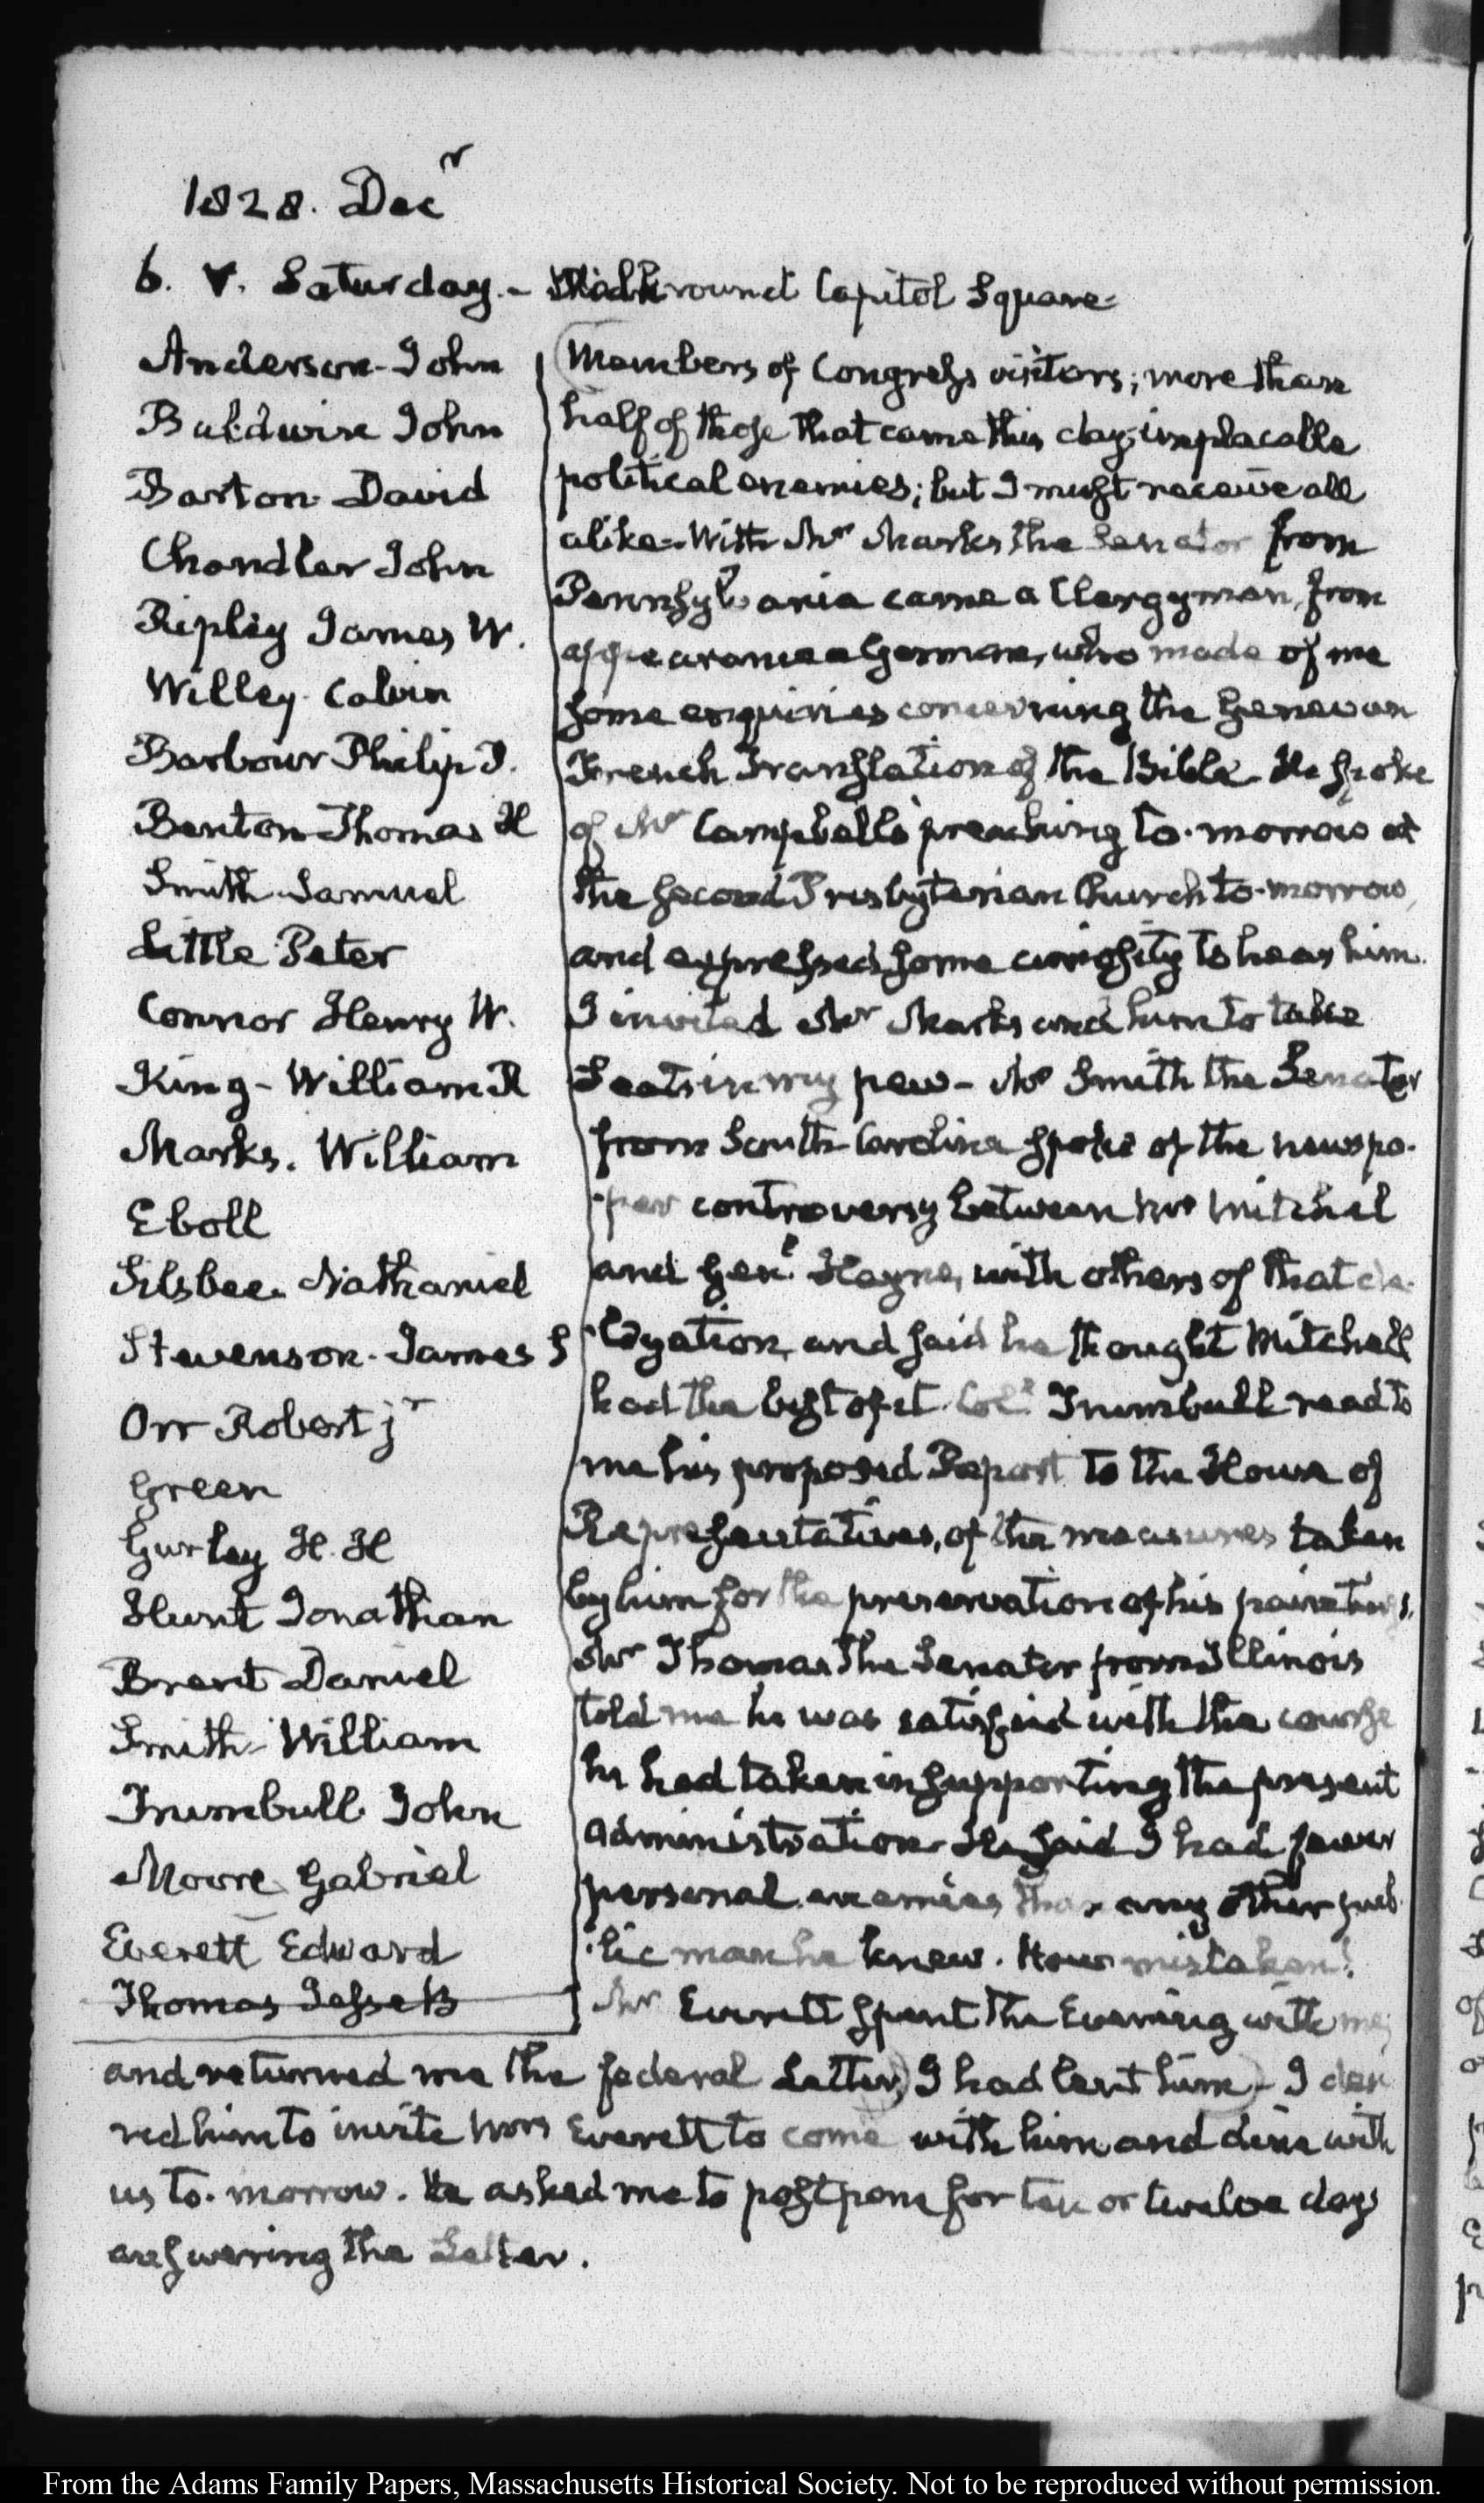 1828. Decr
6. V. Saturday.- Walk round Capitol Square-
Anderson- John
Baldwin John
Barton David
Chandler John
Ripley James W.
Willey Calvin
Barbour Philip P.
Benton Thomas H
Smith Samuel
Little Peter
Connor Henry W.
King- William R
Marks. William
Eboll
Silsbee Nathaniel
Stevenson- James S
Orr Robert jr
Green
Gurley H. H
Hunt Jonathan
Brent Daniel
Smith- William
Trumbull John
Moore Gabriel
Everett Edward
Thomas Jesse B
Members of Congress visitors; more than
half of those that came this day, implacable
political enemies; but I must receive all
alike- With Mr Marks the Senator from
Pennsylvania came a Clergyman, from
appearance a German, who made of me
some enquiries concerning the Genevan
French Translation of the Bible- He spoke
of Mr Campbell's preaching to-morrow at
the second Presbyterian Church to-morrow,
and expressed some curiosity to hear him.
I invited Mr Marks and him to take
Seats in my pew- Mr Smith the Senator
from South Carolina spoke of the newspa-
-per controversy between Mr Mitchel
and Genl. Hayne, with others of that de-
-legation, and said he thought Mitchell
had the best of it. Coll. Trumbull read to
me his proposed Report to the House of
Representatives, of the measures taken
by him for the preservation of his paintings.
Mr Thomas the Senator from Illinois
told me he was satisfied with the course
he had taken in supporting the present
administration- He said I had fewer
personal enemies than any other pub-
-lic man he knew. How mistaken!
Mr Everett spent the Evening with me;
and returned me the federal Letter, I had lent him- I desi
red him to invite Mrs Everett to come with him and dine with
us to-morrow. He asked me to postpone for ten or twelve days
answering the Letter.
From the Adams Family Papers, Massachusetts Historical Society. Not to be reproduced without permission.